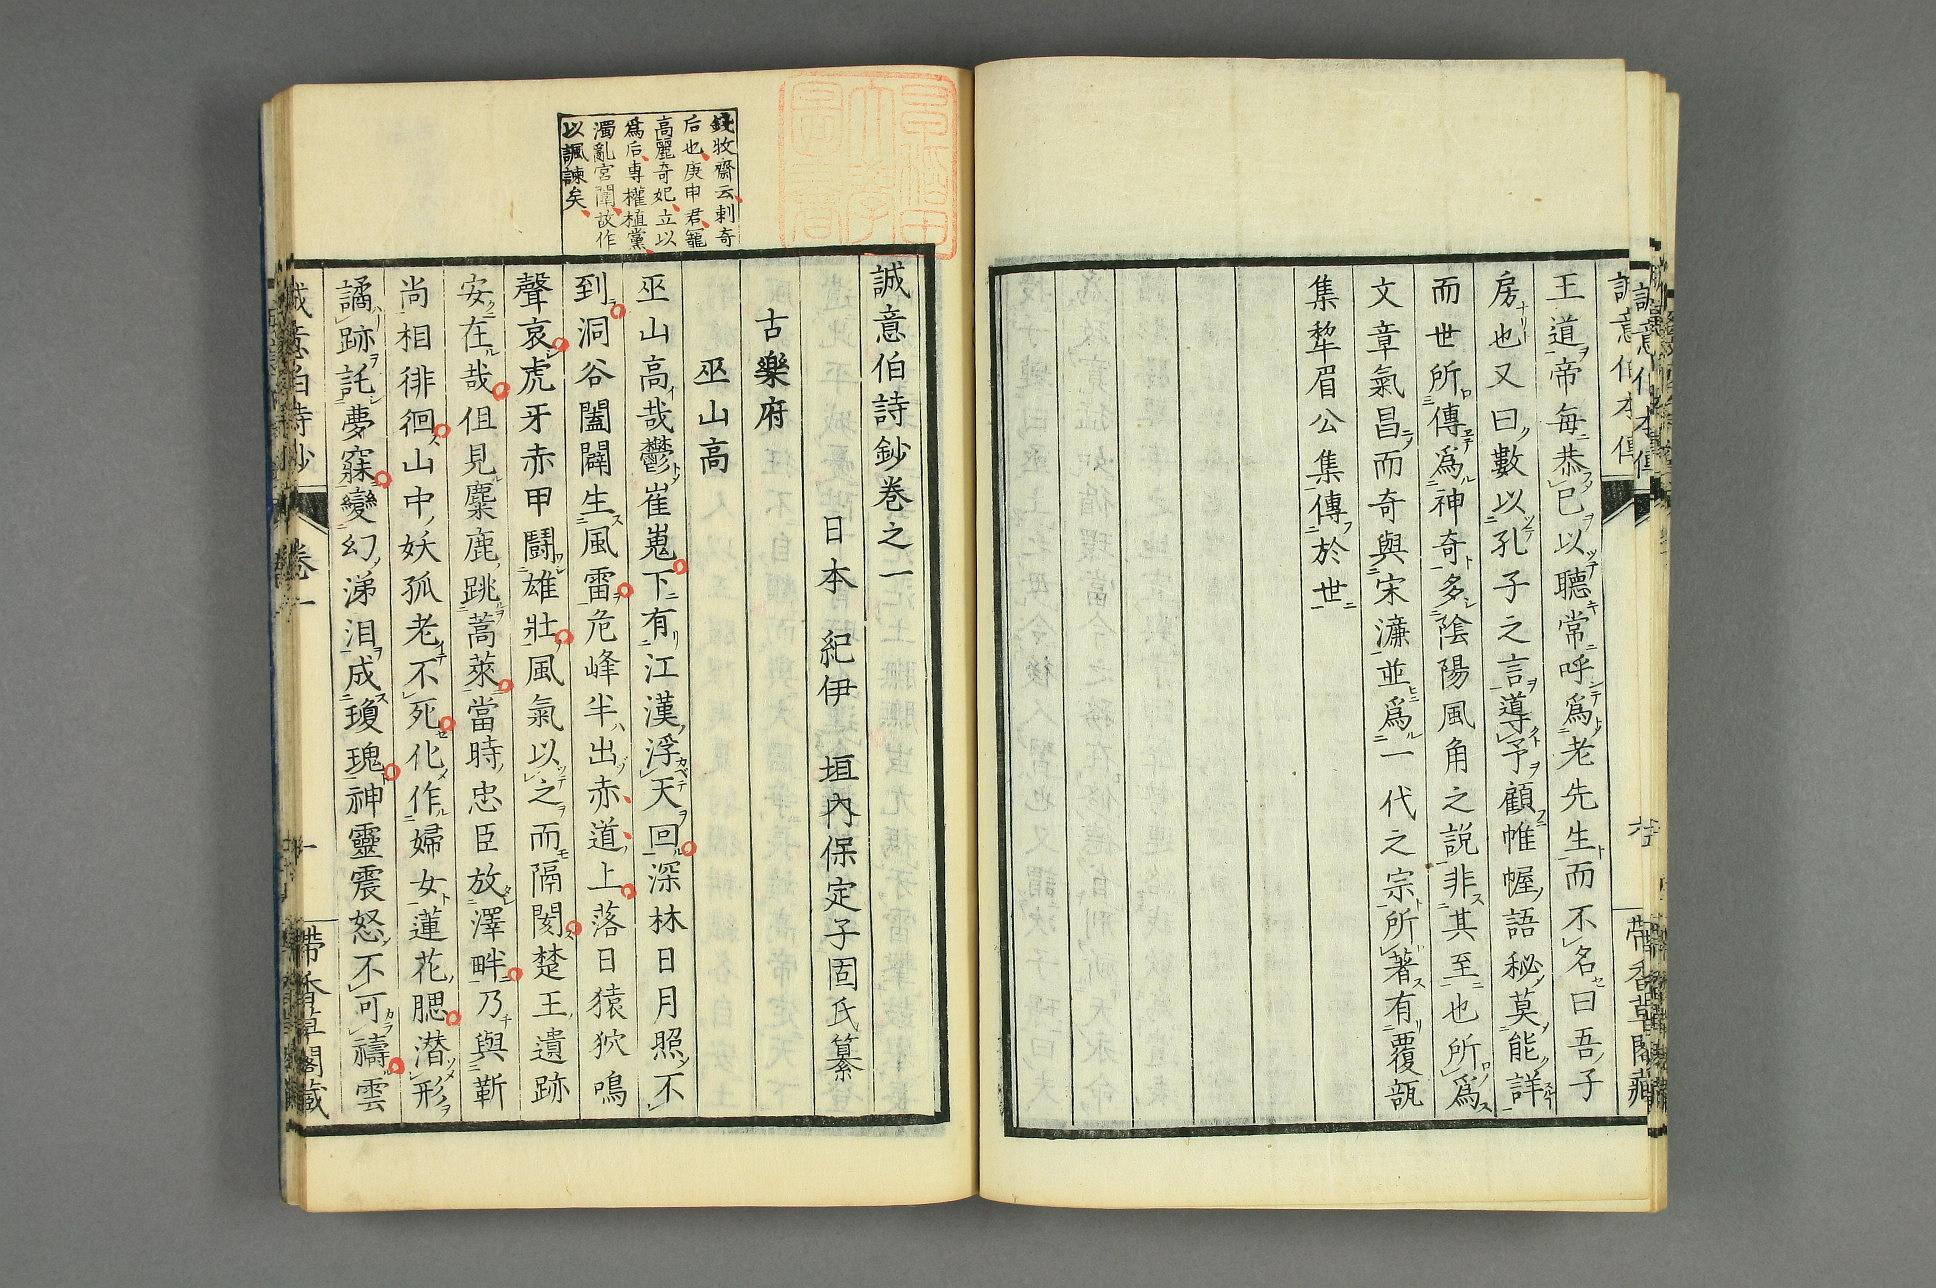 王道帝每恭已以聽常呼爲老先生而不名曰吾子
房也又曰數以孔子之言導予顧帷幄語秘莫能詳
而世所傳爲神奇多陰陽風角之說非其至也所爲
文章氣昌而奇與宋濂並爲一代之宗所著有覆瓿
集犂眉公集傳於世
錢牧齋云刺奇
后也庚申君寵
高麗奇妃立以
爲后專權植黨
濁亂宮闈故作
以諷諫矣
誠意伯詩鈔卷之一
日本 紀伊 垣內保定子固氏纂
古樂府
巫山高
巫山高哉鬱崔嵬下有江漢浮天回深林日月照不
到洞谷闔闢生風雷危峰半出赤道上落日猿狖鳴
聲哀虎牙赤甲鬪雄壯風氣以之而隔閡楚王遺跡
安在哉但見麋鹿跳蒿萊當時忠臣放澤畔乃與靳
尚相徘徊山中妖狐老不死化作婦女蓮花腮潜形
譎跡託夢寐變幻涕泪成瓊瑰神靈震怒不可禱雲
誠意伯詩鈔 卷一 一 帶香草閣藏